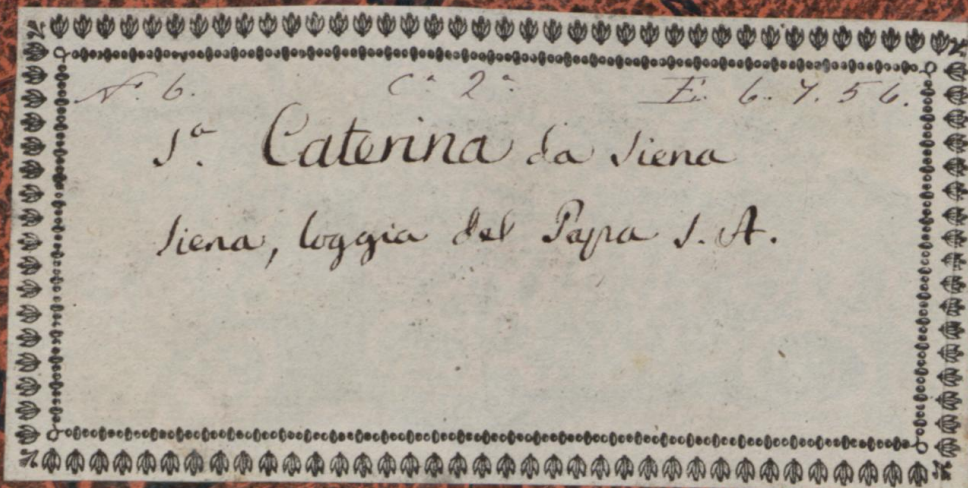 N.° 6. C.ª 2.ª E. 6. 7. 56.
S.ª Caterina da Siena
Siena, loggia del Papa S. A.